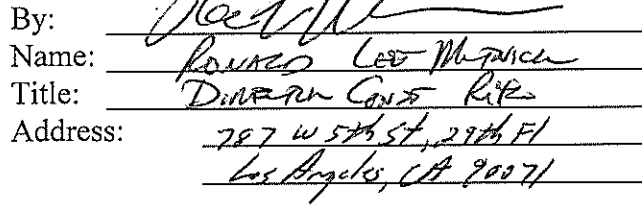 By:
Name: Ronald Lee
Title: Director Const
Address: 787 W 5th St, 29th Fl
Los Angeles, CA 90071